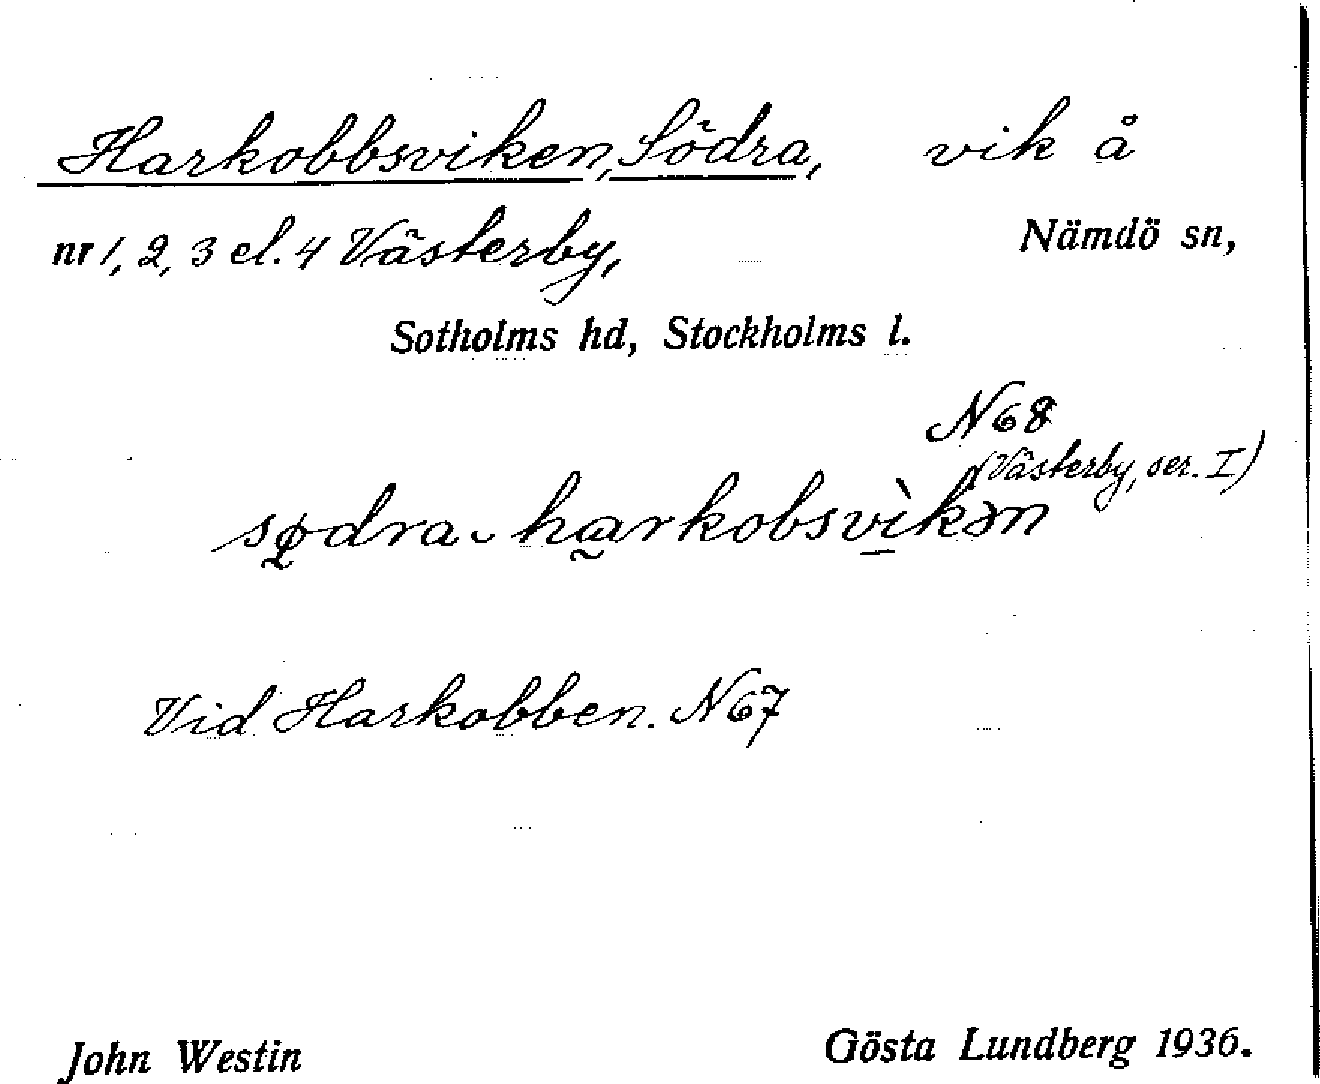 Harkobbsviken, Södra, vik å
nr 1, 2, 3 el. 4 Västerby, Nämdö sn,
Sotholms hd, Stockholms l.
N 68
(Västerby, ser. I)
sødra ˘ harkobsvìkən
Vid Harkobben. N 67
John Westin Gösta Lundberg 1936.